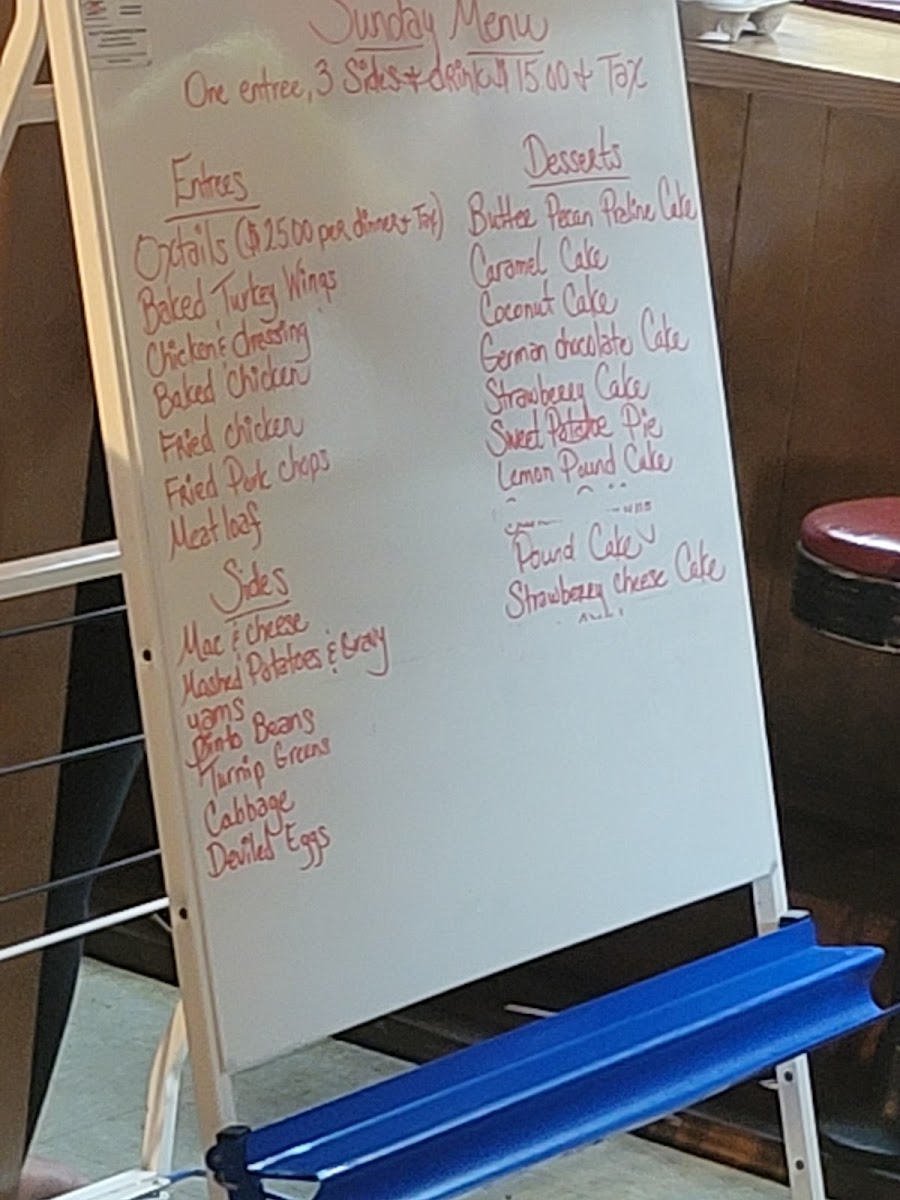 Sunday Menu
One entree, 3 Sides + drink $15.00 + Tax
Entrees
Oxtails ($25.00 per dinner + Tax)
Baked Turkey Wings
Chicken & dressing
Baked chicken
Fried chicken
Fried Pork chops
Meatloaf
Sides
Mac & cheese
Mashed Potatoes & Gravy
yams
Pinto Beans
Turnip Greens
Cabbage
Deviled Eggs
Desserts
Butter Pecan Praline Cake
Caramel Cake
Coconut Cake
German chocolate Cake
Strawberry Cake
Sweet Potatoe Pie
Lemon Pound Cake
Pound Cake
Strawberry cheese Cake